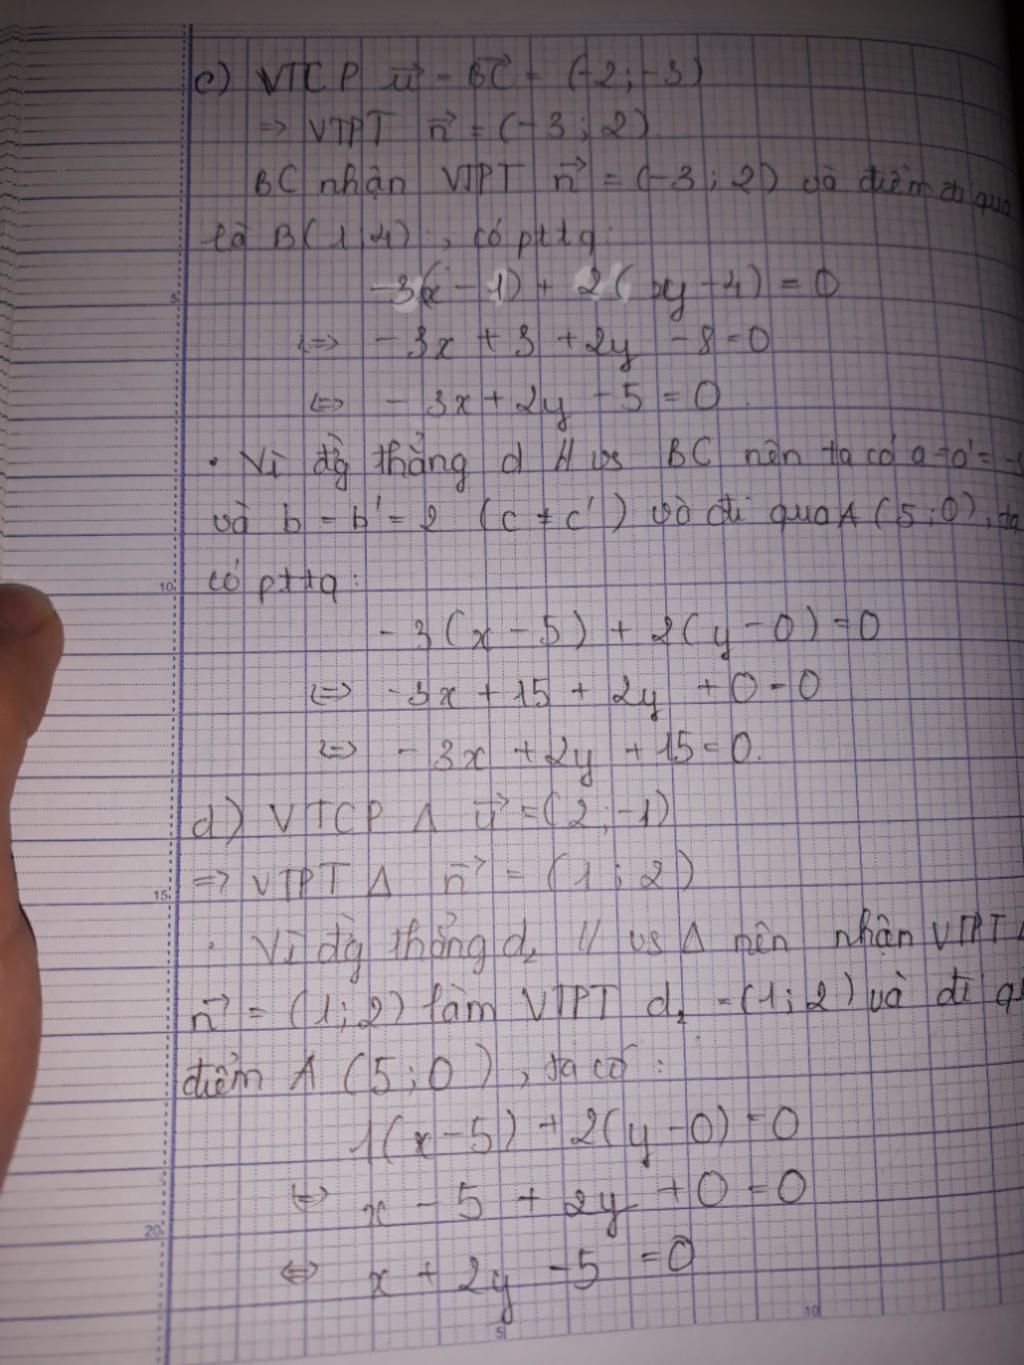 c) VTCP u⃗ = BC⃗ = (-2; -3)
=> VTPT n⃗ = (-3; 2)
BC nhận VTPT n⃗ = (-3; 2) và điểm đi qua
là B(1; 4), có pttq:
-3(x - 1) + 2(y - 4) = 0
<=> -3x + 3 + 2y - 8 = 0
<=> -3x + 2y - 5 = 0
• Vì đg thẳng d // vs BC nên ta có a = a' = -3
và b = b' = 2 (c ≠ c') và đi qua A(5; 0), ta
có pttq:
-3(x - 5) + 2(y - 0) = 0
<=> -3x + 15 + 2y + 0 = 0
<=> -3x + 2y + 15 = 0.
d) VTCP Δ u⃗ = (2; -1)
=> VTPT Δ n⃗ = (1; 2)
• Vì đg thẳng d₂ // vs Δ nên nhận VTPT Δ
n⃗ = (1; 2) làm VTPT d₂ = (1; 2) và đi
điểm A (5; 0), ta có:
1(x - 5) + 2(y - 0) = 0
<=> x - 5 + 2y + 0 = 0
<=> x + 2y - 5 = 0
5
10
15
20
5
10